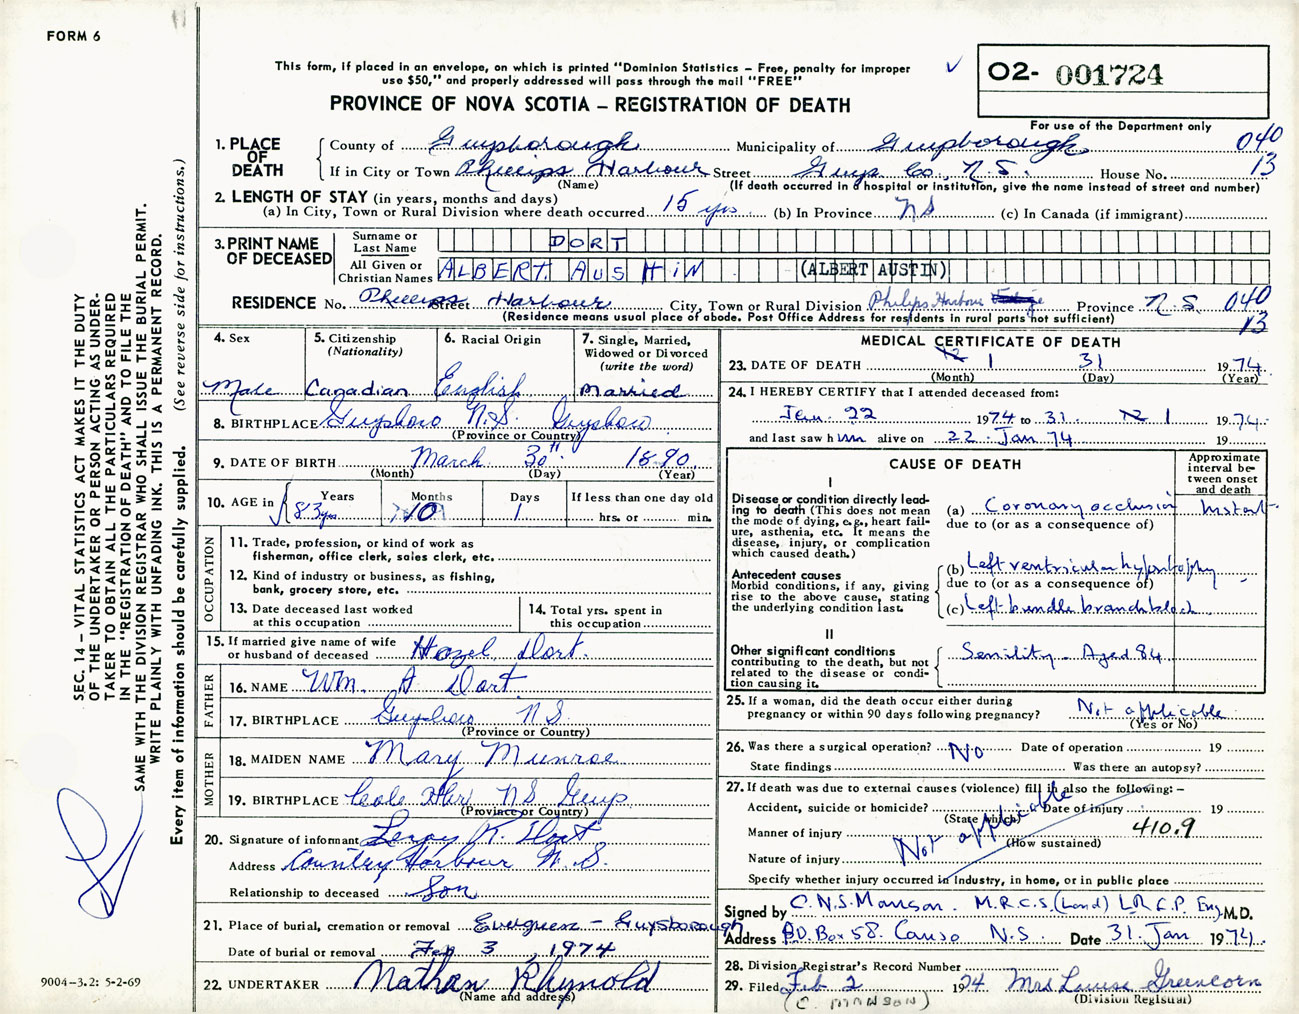 FORM 6
This form, if placed in an envelope, on which is printed "Dominion Statistics – Free, penalty for improper
use $50," and properly addressed will pass through the mail "FREE"
PROVINCE OF NOVA SCOTIA – REGISTRATION OF DEATH
02- 001724
For use of the Department only
1. PLACE OF DEATH County of Guysborough Municipality of Guysborough 040
If in City or Town Phillips Harbour Street Guys Co. N.S. House No. 13
(Name) (If death occurred in a hospital or institution, give the name instead of street and number)
2. LENGTH OF STAY (in years, months and days)
(a) In City, Town or Rural Division where death occurred 15 yrs (b) In Province NS (c) In Canada (if immigrant)
3. PRINT NAME OF DECEASED Surname or Last Name DORT
All Given or Christian Names ALBERT AUSHIN (ALBERT AUSTIN)
RESIDENCE No. Phillips Street Harbour City, Town or Rural Division Philips Harbour Province N.S. 040
(Residence means usual place of abode. Post Office Address for residents in rural parts not sufficient) 13
4. Sex Male
5. Citizenship (Nationality) Canadian
6. Racial Origin English
7. Single, Married, Widowed or Divorced (write the word) Married
8. BIRTHPLACE Guysboro N.S. Guysboro
(Province or Country)
9. DATE OF BIRTH March 30th 1890
(Month) (Day) (Year)
10. AGE in Years 83 yrs Months 10 Days 1 If less than one day old hrs. or min.
OCCUPATION
11. Trade, profession, or kind of work as
fisherman, office clerk, sales clerk, etc.
12. Kind of industry or business, as fishing,
bank, grocery store, etc.
13. Date deceased last worked
at this occupation
14. Total yrs. spent in
this occupation
15. If married give name of wife
or husband of deceased Hazel Dort.
FATHER
16. NAME Wm. A Dort
17. BIRTHPLACE Guysboro N.S.
(Province or Country)
MOTHER
18. MAIDEN NAME Mary Munroe
19. BIRTHPLACE Cole Hbr NS Guys
(Province or Country)
20. Signature of informant Leroy R. Dort
Address Country Harbour N.S.
Relationship to deceased Son
21. Place of burial, cremation or removal Evergreen – Guysborough
Date of burial or removal Feb 3, 1974
22. UNDERTAKER Nathan Rhynold
(Name and address)
MEDICAL CERTIFICATE OF DEATH
23. DATE OF DEATH 12 1 31 1974
(Month) (Day) (Year)
24. I HEREBY CERTIFY that I attended deceased from:
Jan. 22 1974 to 31. 12 1 1974
and last saw him alive on 22. Jan 74 19
CAUSE OF DEATH
Approximate interval between onset and death
I
Disease or condition directly leading to death (This does not mean the mode of dying, e.g., heart failure, asthenia, etc. It means the disease, injury, or complication which caused death.)
(a) Coronary occlusion Instant
due to (or as a consequence of)
Antecedent causes
Morbid conditions, if any, giving rise to the above cause, stating the underlying condition last.
(b) Left ventricular hypertrophy
due to (or as a consequence of)
(c) Left bundle branch block
II
Other significant conditions contributing to the death, but not related to the disease or condition causing it.
Senility – Aged 84
25. If a woman, did the death occur either during
pregnancy or within 90 days following pregnancy? Not applicable
(Yes or No)
26. Was there a surgical operation? No Date of operation 19
State findings Was there an autopsy?
27. If death was due to external causes (violence) fill in also the following: –
Accident, suicide or homicide? Date of injury 19
(State which)
Manner of injury 410.9
(How sustained)
Not applicable
Nature of injury
Specify whether injury occurred in industry, in home, or in public place
Signed by C.N.S. Manson. M.R.C.S. (Lond) L.R.C.P. Eng M.D.
Address P.O. Box 58. Canso N.S. Date 31. Jan 1974
28. Division Registrar's Record Number
29. Filed Feb 2 1974 Mrs Louise Greencorn
(C. MANSON) (Division Registrar)
SEC. 14 – VITAL STATISTICS ACT MAKES IT THE DUTY
OF THE UNDERTAKER OR PERSON ACTING AS UNDER-
TAKER TO OBTAIN ALL THE PARTICULARS REQUIRED
IN THE "REGISTRATION OF DEATH" AND TO FILE THE
SAME WITH THE DIVISION REGISTRAR WHO SHALL ISSUE THE BURIAL PERMIT.
WRITE PLAINLY WITH UNFADING INK. THIS IS A PERMANENT RECORD.
Every item of information should be carefully supplied. (See reverse side for instructions.)
9004-3.2: 5-2-69